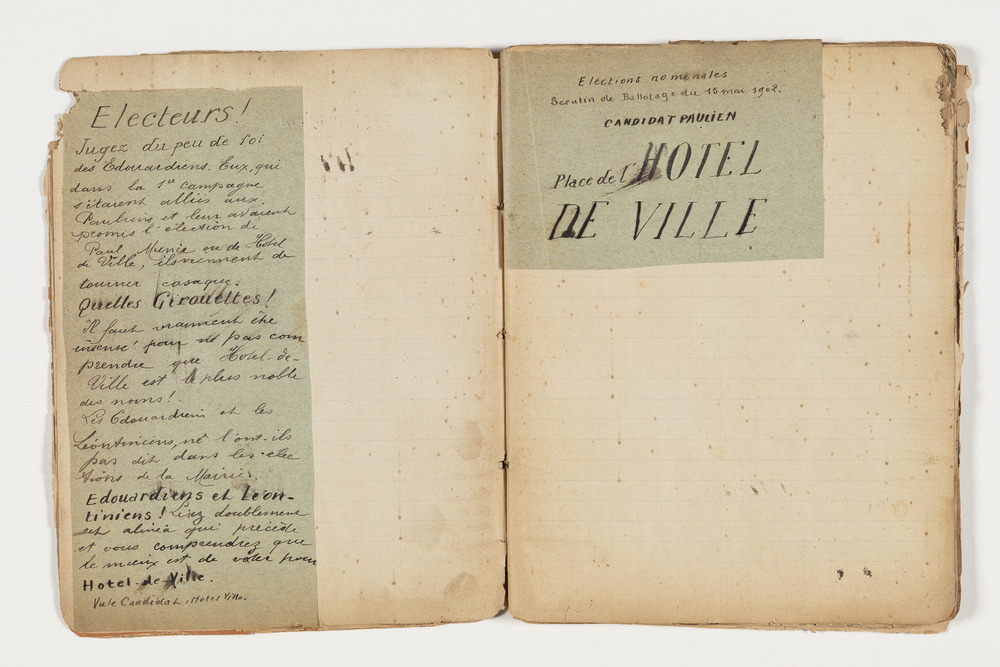 Electeurs!
Jugez du peu de foi
des Edouardiens. Eux, qui
dans la 1re campagne
s'étaient alliés aux
Pauliens et leur avaient
promis l'élection de
Paul Munié ou de Hotel
de Ville, ils viennent de
tourner casaque.
Quelles Girouettes!
Il faut vraiment être
insensé pour ne pas com
prendre que Hotel-de-
Ville est le plus noble
des noms!
Les Edouardiens et les
Léontiniens, ne l'ont-ils
pas dit dans les élec
tions de la Mairie.
Edouardiens et Léon-
tiniens! Lisez doublement
cet alinéa qui précède
et vous comprendrez que
le mieux est de voter pour
Hotel-de-Ville.
Vu le Candidat, Hotel Ville.
Elections nominales
Scrutin de Ballotage du 15 mai 1902.
CANDIDAT PAULIEN
Place de l'HOTEL
DE VILLE